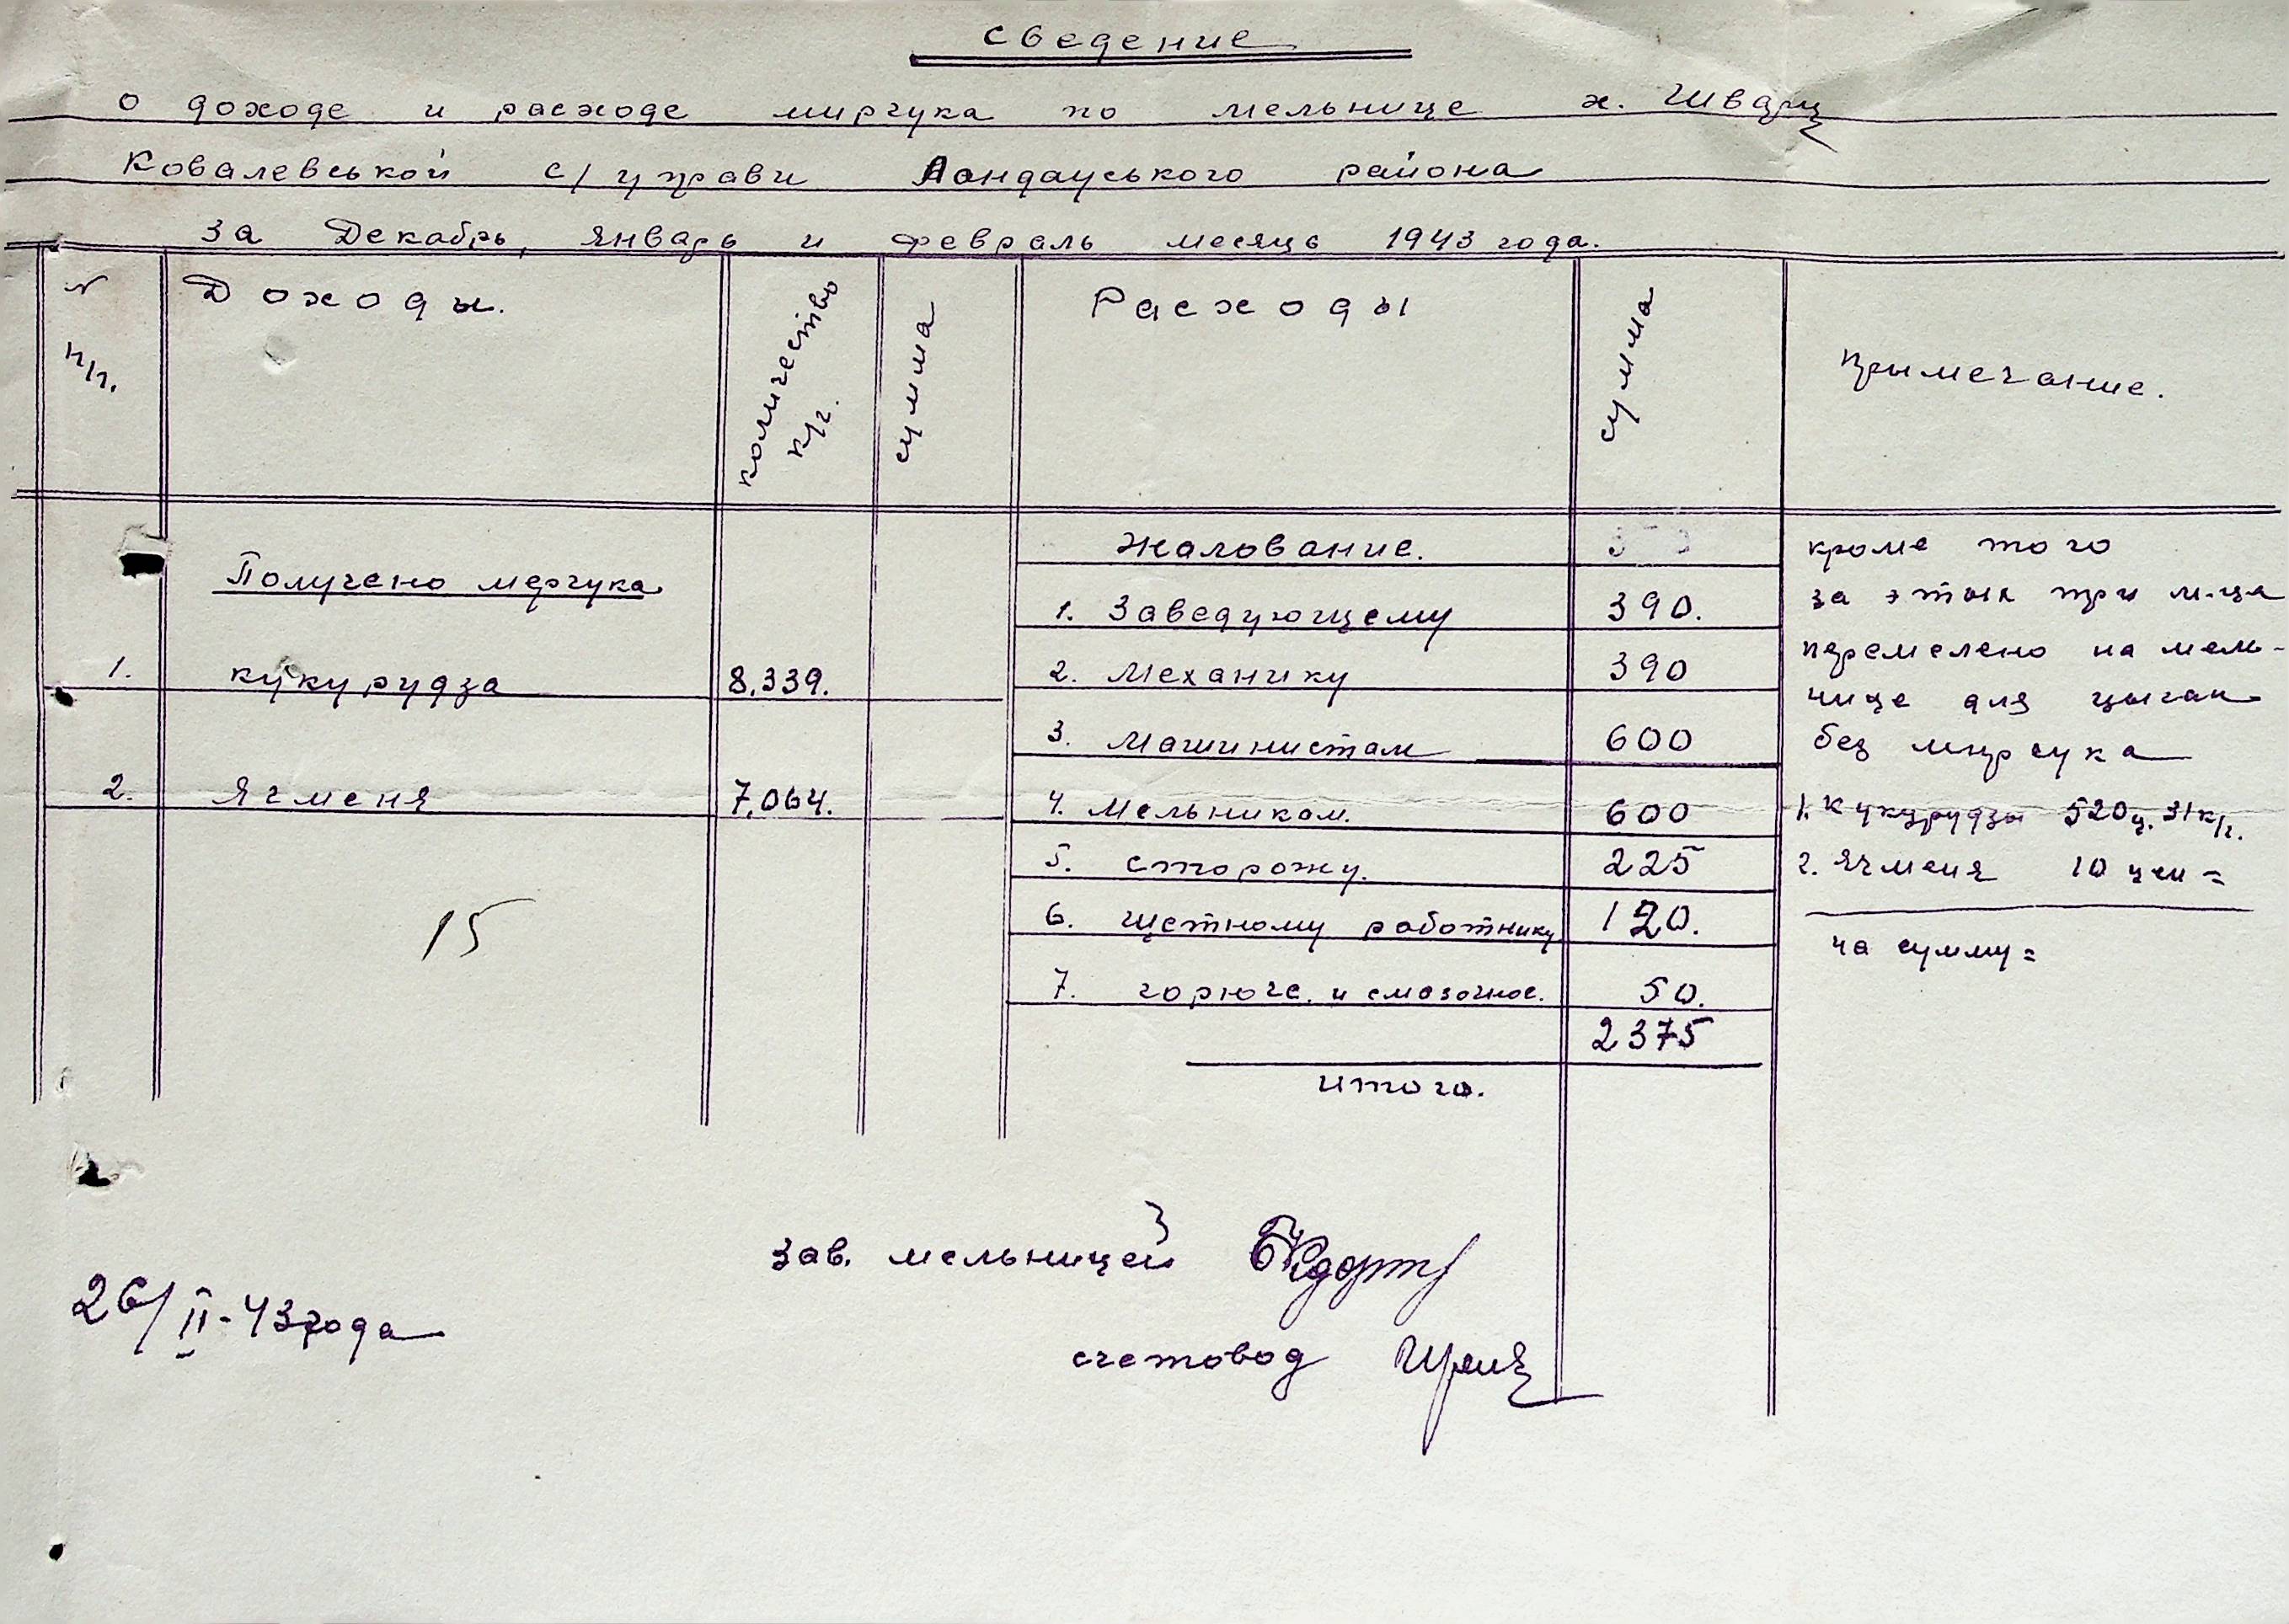 Сведение
о доходе и расходе миргука по мельнице х. Шварц
Ковалевськой с/управи Ландауського района
за Декабрь, январь и февраль месяць 1943 года.
№ п/п. Доходы. количество к/г. сумма Расходы сумма Примечание.
Получено мергука
1. кукурудза 8,339.
2. ячменя 7,064.
15
Жалование.
1. Заведующему 390.
2. Механику 390
3. Машинистам 600
4. Мельникам. 600
5. сторожу. 225
6. щетному работнику 120.
7. горюче. и смазочное. 50.
2375
итого.
кроме того
за этых три м-ца
перемелено на мель-
нице для цыган
без миргука
1. Кукурудзы 520ц. 31к/г.
2. Ячменя 10 цен =
на сумму =
зав. мельницей
счетовод
26/II-43 года